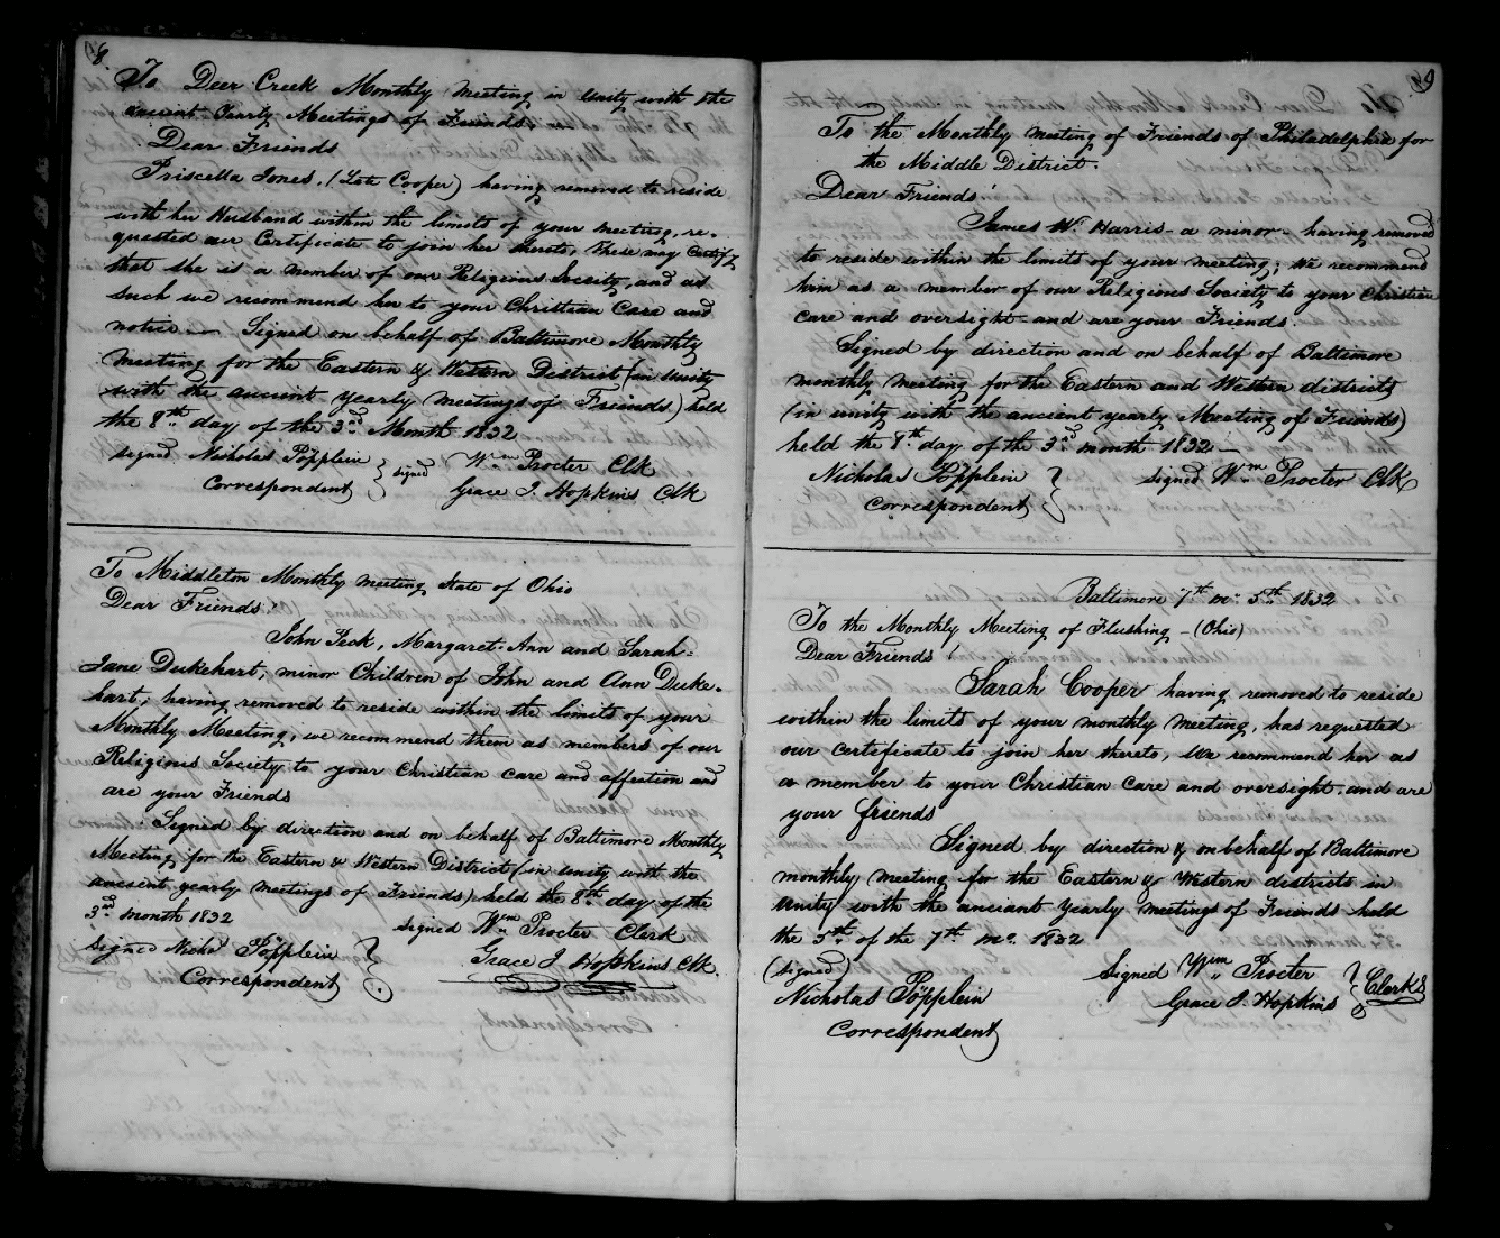 8
To Deer Creek Monthly Meeting in unity with the
ancient Yearly Meetings of Friends
Dear Friends
Priscella Jones, (Late Cooper) having removed to reside
with her Husband within the limits of your meeting, re-
quested our Certificate to join her thereto, These may Certify
that she is a member of our Religious Society, and as
such we recommend her to your Christian Care and
notice — Signed on behalf of Baltimore Monthly
Meeting for the Eastern & Western District (in Unity
with the ancient yearly meetings of Friends) held
the 8th day of the 3rd Month 1832
signed Nicholas Pöpplein } signed Wm Procter Clk
Correspondent Grace J. Hopkins Clk
To Middleton Monthly meeting State of Ohio
Dear Friends
John Peck, Margaret Ann and Sarah
Jane Dukehart, minor Children of John and Ann Duke-
hart, having removed to reside within the limits of your
Monthly Meeting, we recommend them as members of our
Religious Society to your Christian care and affection and
are your Friends
Signed by direction and on behalf of Baltimore Monthly
Meeting for the Eastern & Western District (in unity with the
ancient yearly meetings of Friends) held the 8th day of the
3rd month 1832
signed Wm Procter Clerk
Signed Nichs Pöpplein } Grace J Hopkins Clk.
Correspondent
9
To the Monthly Meeting of Friends of Philadelphia for
the Middle District.
Dear Friends!
James W. Harris - a minor - having removed
to reside within the limits of your meeting; we recommend
him as a member of our Religious Society to your Christian
care and oversight and are your Friends.
Signed by direction and on behalf of Baltimore
monthly meeting for the Eastern and Western districts
(in unity with the ancient yearly Meeting of Friends)
held the 8th day of the 3rd month 1832 —
Nicholas Pöpplein } Signed Wm Procter Clk
Correspondent
Baltimore 7th mo 5th 1832
To the Monthly Meeting of Flushing - (Ohio)
Dear Friends!
Sarah Cooper having removed to reside
within the limits of your monthly Meeting, has requested
our certificate to join her thereto, We recommend her as
a member to your Christian Care and oversight, and are
your friends
Signed by direction & on behalf of Baltimore
monthly meeting for the Eastern & Western districts in
Unity with the ancient Yearly Meetings of Friends held
the 5th of the 7th mo. 1832
(signed) Signed Wm Procter } Clerks
Nicholas Pöpplein Grace J. Hopkins
Correspondent